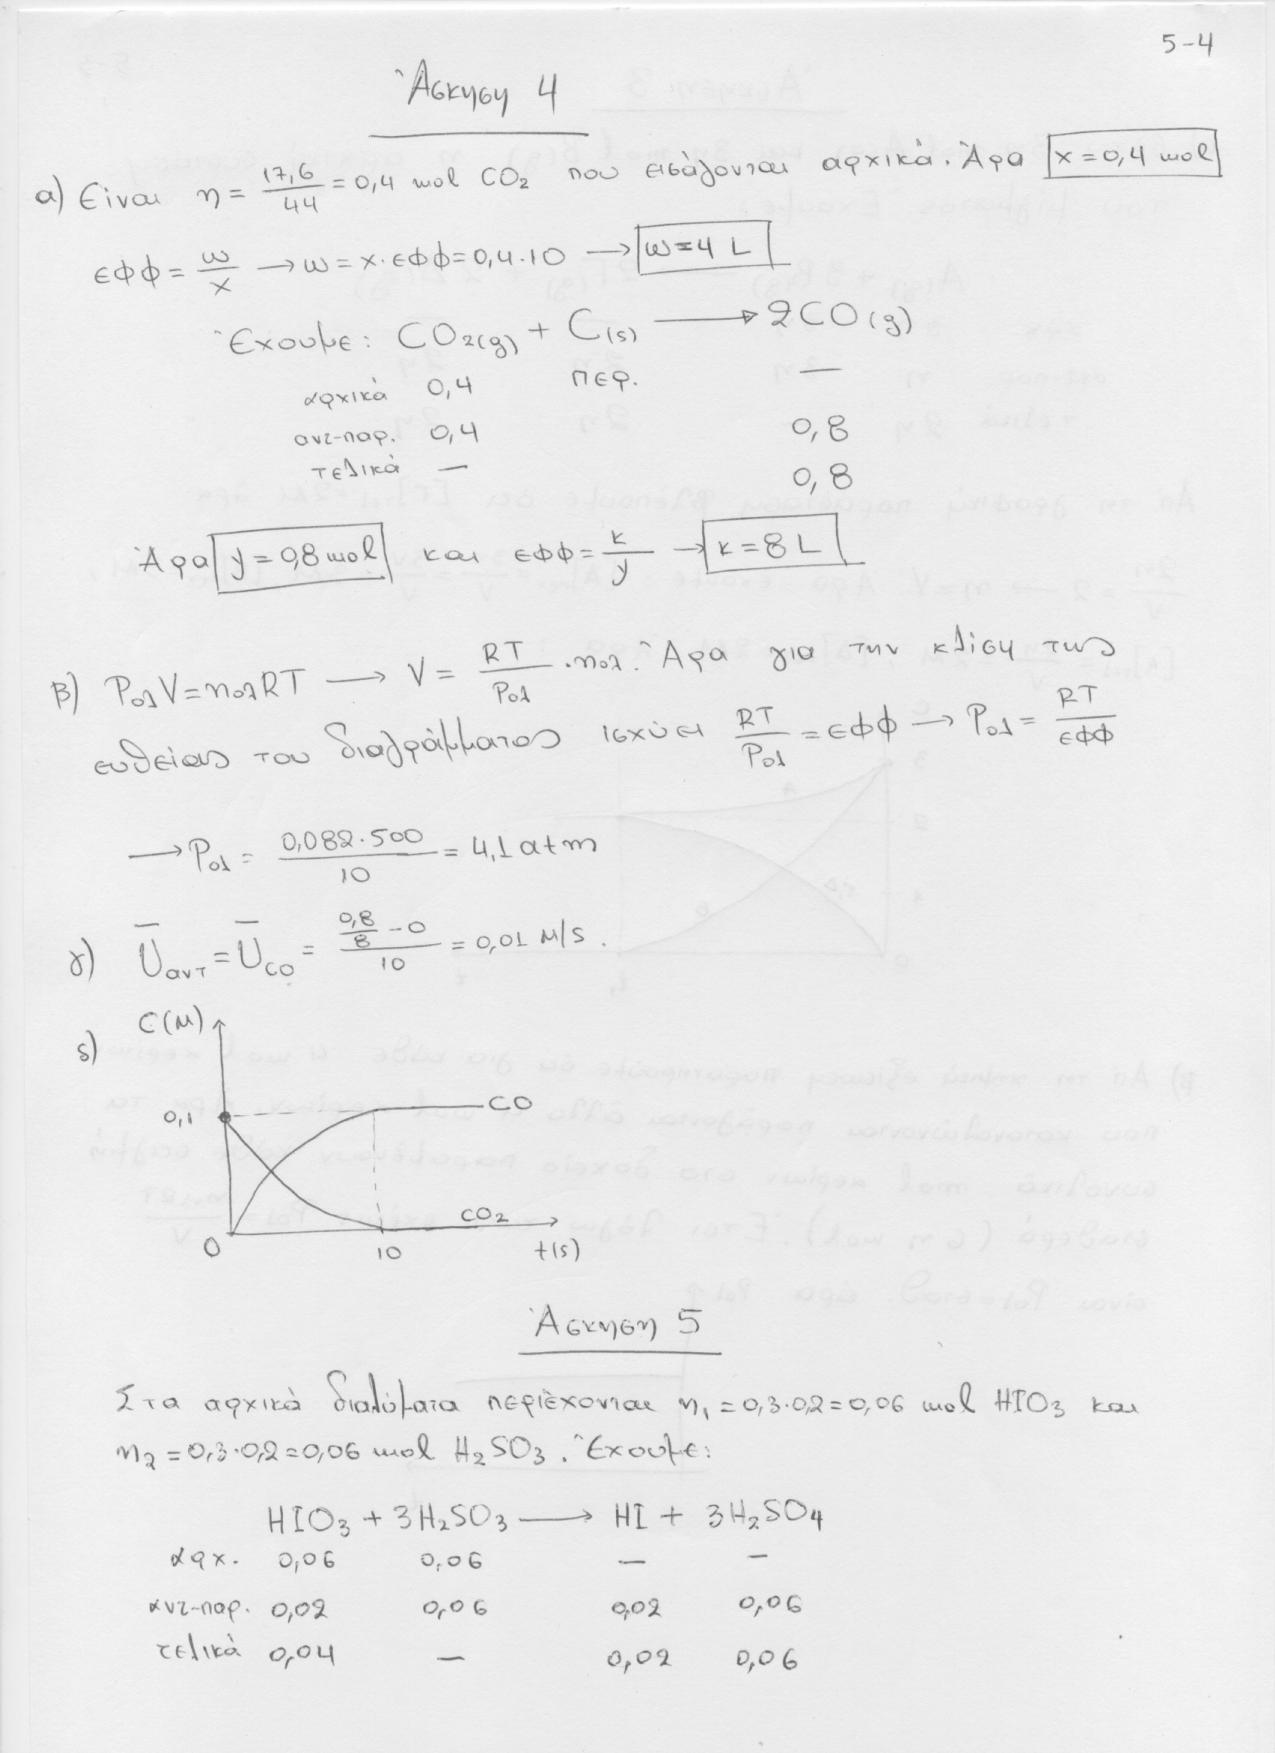 5-4
Άσκηση 4
α) Είναι n = 17,6/44 = 0,4 mol CO2 που εισάγονται αρχικά. Άρα x = 0,4 mol
εφφ = ω/x → ω = x·εφφ = 0,4·10 → ω = 4 L
Έχουμε: CO2(g) + C(s) → 2CO(g)
αρχικά 0,4 περ. —
αντ-παρ. 0,4 0,8
τελικά — 0,8
Άρα y = 0,8 mol και εφφ = κ/y → κ = 8 L
β) Pολ V = nολ RT → V = RT/Pολ · nολ. Άρα για την κλίση της
ευθείας του διαγράμματος ισχύει RT/Pολ = εφφ → Pολ = RT/εφφ
→ Pολ = 0,082·500/10 = 4,1 atm
γ) Ūαντ = ŪCO = (0,8/8 - 0)/10 = 0,01 M/s.
δ)
C(M)
0,1
CO
CO2
0
10
t(s)
Άσκηση 5
Στα αρχικά διαλύματα περιέχονται n1 = 0,3·0,2 = 0,06 mol HIO3 και
n2 = 0,3·0,2 = 0,06 mol H2SO3. Έχουμε:
HIO3 + 3H2SO3 → HI + 3H2SO4
αρχ. 0,06 0,06 — —
αντ-παρ. 0,02 0,06 0,02 0,06
τελικά 0,04 — 0,02 0,06